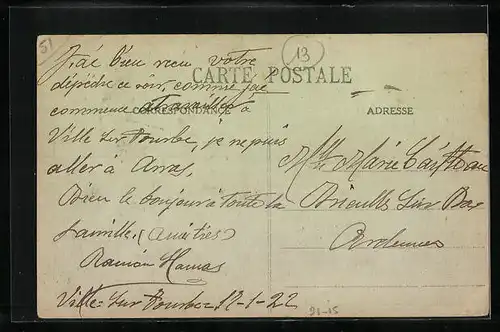 51
13
J'ai bien reçu votre
dépêche ce soir, comme j'ai
CARTE POSTALE
commence à travailler à
CORRESPONDANCE
ADRESSE
Ville sur Tourbe, je ne puis
aller à Arras,
Bien le bonjour à toute la
famille. (Amitiés)
Ramon
Ville-sur-Tourbe 12-1-22
Mlle Marie
Brieulles sur Bar
Ardennes
21-15